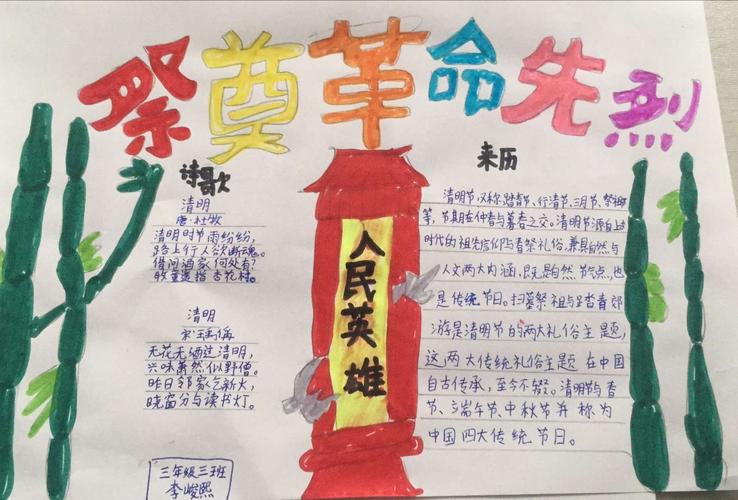 祭奠革命先烈
诗歌
清明
唐·杜牧
清明时节雨纷纷，
路上行人欲断魂。
借问酒家何处有？
牧童遥指杏花村。
清明
宋·王禹偁
无花无酒过清明，
兴味萧然似野僧。
昨日邻家乞新火，
晓窗分与读书灯。
三年级三班
李峻熙
人民英雄
来历
清明节，又称踏青节、行清节、三月节、祭祖
等，节期在仲春与暮春之交。清明节源自上
时代的祖先信仰与春祭礼俗，兼具自然与
人文两大内涵，既是自然节点，也
是传统节日。扫墓祭祖与踏青郊
游是清明节的两大礼俗主题，
这两大传统礼俗主题在中国
自古传承，至今不辍。清明节与春
节、端午节、中秋节并称为
中国四大传统节日。